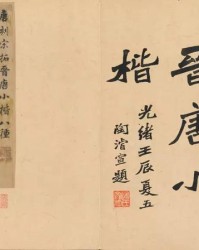 晉唐小
楷
光緒壬辰夏五
陶濬宣題
唐刻宋拓晉唐小楷八種